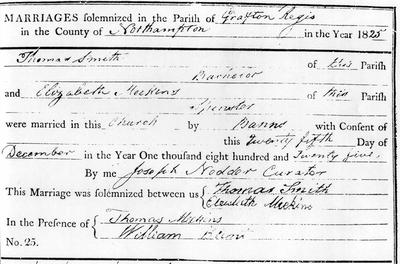 MARRIAGES solemnized in the Parish of Grafton Regis
in the County of Northampton in the Year 1825
Thomas Smith of this Parish
Bachelor
and Elizabeth Meekins of this Parish
Spinster
were married in this Church by Banns with Consent of
this twenty fifth Day of
December in the Year One thousand eight hundred and twenty five.
By me Joseph Nodder Curator
This Marriage was solemnized between us { Thomas Smith
Elizabeth Meekins
In the Presence of { Thomas Meekins
William
No. 25.